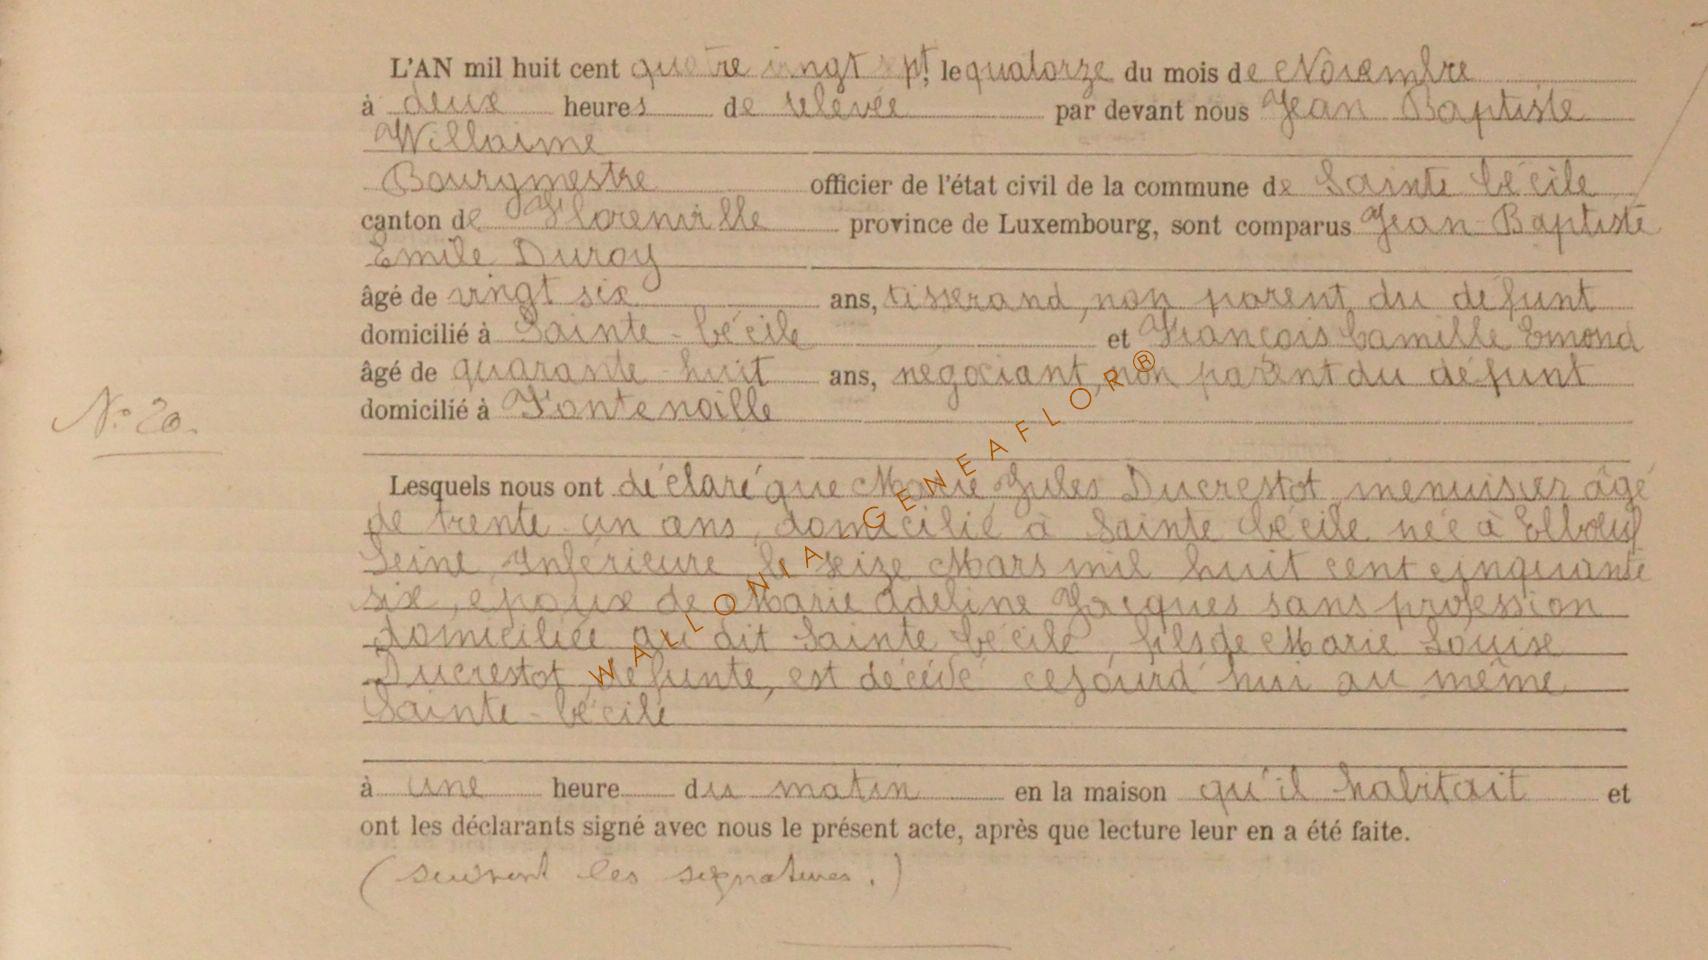 L'AN mil huit cent quatre vingt sept, le quatorze du mois de Novembre
à deux heures de relevée par devant nous Jean Baptiste
Willaime
Bourgmestre officier de l'état civil de la commune de Sainte Cécile
canton de Florenville province de Luxembourg, sont comparus Jean-Baptiste
Emile Duroy
âgé de vingt six ans, tisserand, non parent du défunt
domicilié à Sainte-Cécile et François Camille Emond
âgé de quarante-huit ans, négociant, non parent du défunt
domicilié à Fontenoille
N° 20.
Lesquels nous ont déclaré que Marie Jules Ducrestot, menuisier âgé
de trente-un ans, domicilié à Sainte Cécile née à Elboeuf
Seine Inférieure le seize Mars mil huit cent cinquante
six, époux de Marie Adeline Jacques sans profession
domiciliée au dit Sainte Cécile, fils de Marie Louise
Ducrestot défunte, est décédé cejourd'hui au même
Sainte-Cécile
à une heure du matin en la maison qu'il habitait et
ont les déclarants signé avec nous le présent acte, après que lecture leur en a été faite.
(suivent les signatures.)
WALLONIA GENEAFLOR®